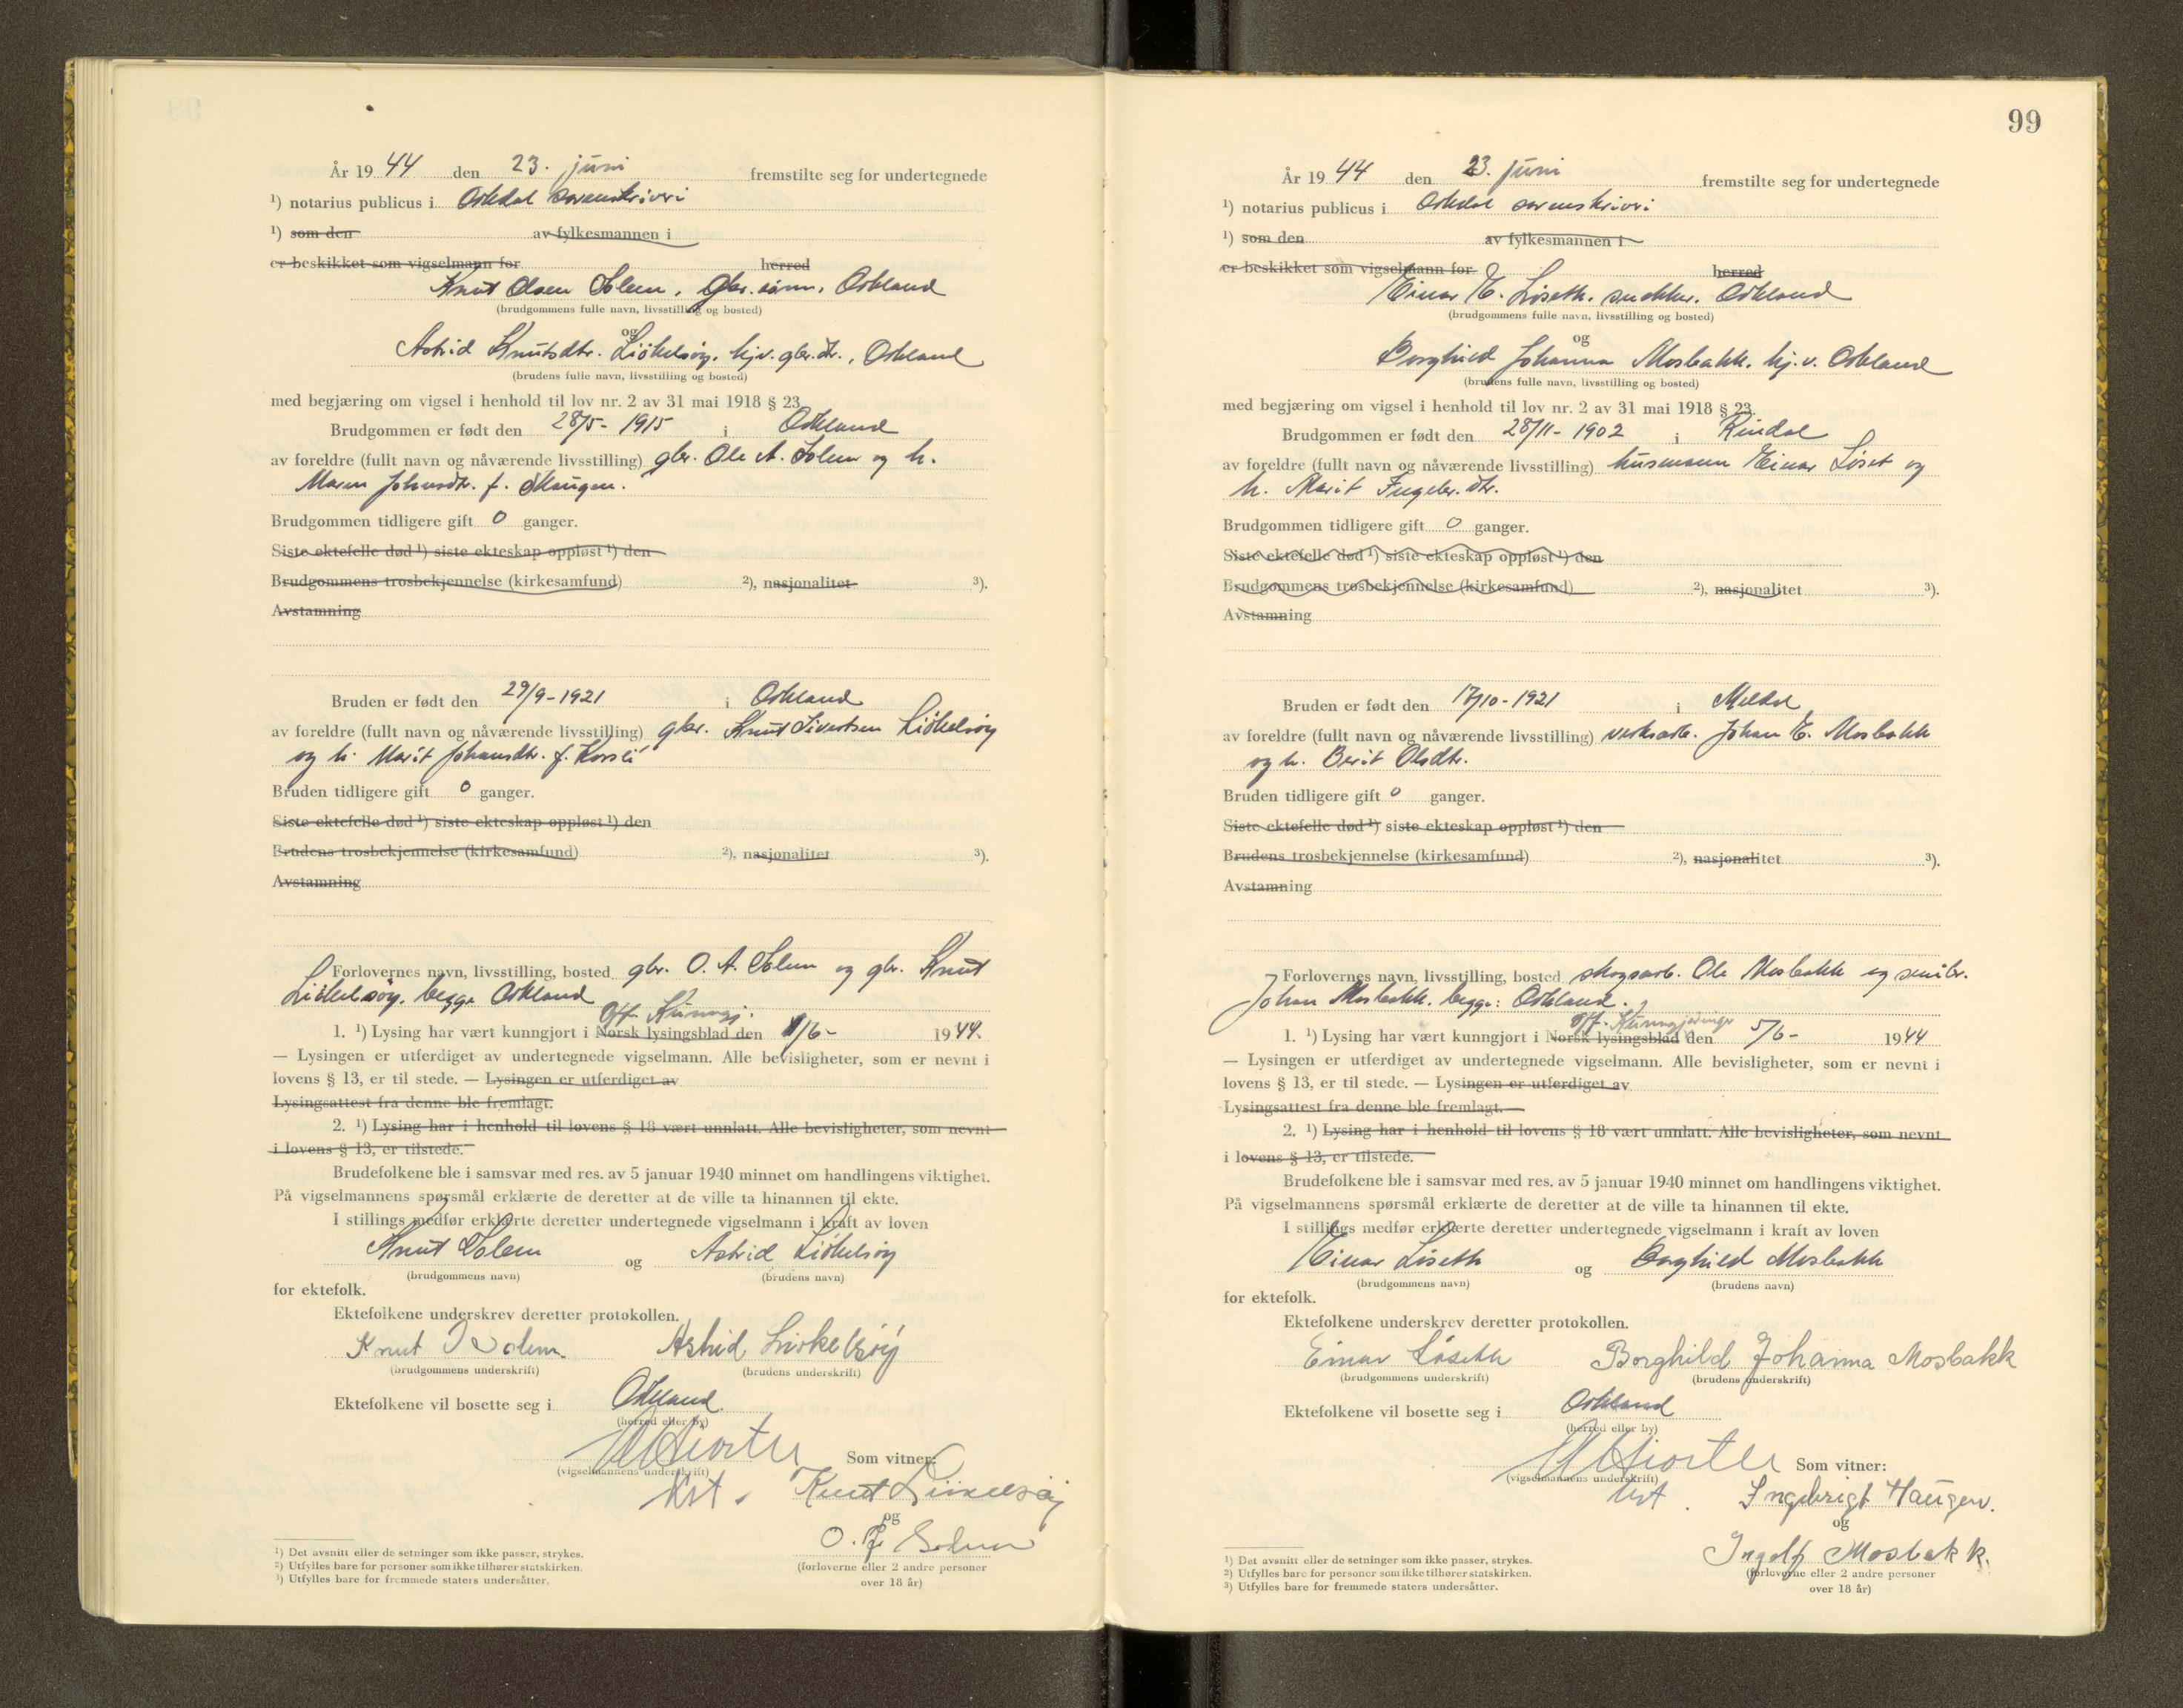 År 19 44 den 23. juni fremstilte seg for undertegnede
¹) notarius publicus i Orkdal sorenskriveri
¹) som den av fylkesmannen i
er beskikket som vigselmann for herred
Knut Olsen Solem, gbr. sønn, Orkland
(brudgommens fulle navn, livsstilling og bosted)
og
Astrid Knutsdtr. Liökelsöy, hjv. gbr.dtr., Orkland
(brudens fulle navn, livsstilling og bosted)
med begjæring om vigsel i henhold til lov nr. 2 av 31 mai 1918 § 23.
Brudgommen er født den 28/5- 1915 i Orkland
av foreldre (fullt navn og nåværende livsstilling) gbr. Ole A. Solem og h.
Maren Johnsdtr. f. Skaugen.
Brudgommen tidligere gift 0 ganger.
Siste ektefelle død ¹) siste ekteskap oppløst ¹) den
Brudgommens trosbekjennelse (kirkesamfund) ²), nasjonalitet ³).
Avstamning
Bruden er født den 29/9-1921 i Orkland
av foreldre (fullt navn og nåværende livsstilling) gbr. Knut Sivertsen Liökelsöy
og h. Marit Johansdtr. f. Korsli
Bruden tidligere gift 0 ganger.
Siste ektefelle død ¹) siste ekteskap oppløst ¹) den
Brudens trosbekjennelse (kirkesamfund) ²), nasjonalitet ³).
Avstamning
Forlovernes navn, livsstilling, bosted gbr. O. A. Solem og gbr. Knut
Liökelsöy, begge Orkland
Off. Kunngj.
1. ¹) Lysing har vært kunngjort i Norsk lysingsblad den 1/6- 1944.
— Lysingen er utferdiget av undertegnede vigselmann. Alle bevisligheter, som er nevnt i
lovens § 13, er til stede. — Lysingen er utferdiget av
Lysingsattest fra denne ble fremlagt.
2. ¹) Lysing har i henhold til lovens § 18 vært unnlatt. Alle bevisligheter, som nevnt
i lovens § 13, er tilstede.
Brudefolkene ble i samsvar med res. av 5 januar 1940 minnet om handlingens viktighet.
På vigselmannens spørsmål erklærte de deretter at de ville ta hinannen til ekte.
I stillings medfør erklærte deretter undertegnede vigselmann i kraft av loven
Knut Solem og Astrid Liökelsöy
(brudgommens navn) (brudens navn)
for ektefolk.
Ektefolkene underskrev deretter protokollen.
Knut Solem Astrid Liökelsöy
(brudgommens underskrift) (brudens underskrift)
Ektefolkene vil bosette seg i Orkland
(herred eller by)
Hiorter Som vitner:
(vigselmannens underskrift)
Knut Liökelsöy
og
O. A. Solem
(forloverne eller 2 andre personer
over 18 år)
¹) Det avsnitt eller de setninger som ikke passer, strykes.
²) Utfylles bare for personer som ikke tilhører statskirken.
³) Utfylles bare for fremmede staters undersåtter.
99
År 19 44 den 23. juni fremstilte seg for undertegnede
¹) notarius publicus i Orkdal sorenskriveri
¹) som den av fylkesmannen i
er beskikket som vigselmann for herred
Einar E. Löseth, snekker, Orkland
(brudgommens fulle navn, livsstilling og bosted)
og
Borghild Johanna Mosbakk, hj.v. Orkland
(brudens fulle navn, livsstilling og bosted)
med begjæring om vigsel i henhold til lov nr. 2 av 31 mai 1918 § 23.
Brudgommen er født den 28/11- 1902 i Rindal
av foreldre (fullt navn og nåværende livsstilling) husmann Einar Löset og
h. Marit Ingebr.dtr.
Brudgommen tidligere gift 0 ganger.
Siste ektefelle død ¹) siste ekteskap oppløst ¹) den
Brudgommens trosbekjennelse (kirkesamfund) ²), nasjonalitet ³).
Avstamning
Bruden er født den 17/10-1921 i Meldal
av foreldre (fullt navn og nåværende livsstilling) verksarb. Johan E. Mosbakk
og h. Berit Olsdtr.
Bruden tidligere gift 0 ganger.
Siste ektefelle død ¹) siste ekteskap oppløst ¹) den
Brudens trosbekjennelse (kirkesamfund) ²), nasjonalitet ³).
Avstamning
Forlovernes navn, livsstilling, bosted skogsarb. Ole Mosbakk og
Johan Mosbakk. begge: Orkland.
Off. Kunngjöringer
1. ¹) Lysing har vært kunngjort i Norsk lysingsblad den 5/6- 1944
— Lysingen er utferdiget av undertegnede vigselmann. Alle bevisligheter, som er nevnt i
lovens § 13, er til stede. — Lysingen er utferdiget av
Lysingsattest fra denne ble fremlagt.
2. ¹) Lysing har i henhold til lovens § 18 vært unnlatt. Alle bevisligheter, som nevnt
i lovens § 13, er tilstede.
Brudefolkene ble i samsvar med res. av 5 januar 1940 minnet om handlingens viktighet.
På vigselmannens spørsmål erklærte de deretter at de ville ta hinannen til ekte.
I stillings medfør erklærte deretter undertegnede vigselmann i kraft av loven
Einar Löseth og Borghild Mosbakk
(brudgommens navn) (brudens navn)
for ektefolk.
Ektefolkene underskrev deretter protokollen.
Einar Löseth Borghild Johanna Mosbakk
(brudgommens underskrift) (brudens underskrift)
Ektefolkene vil bosette seg i Orkland
(herred eller by)
Hiorter Som vitner:
(vigselmannens underskrift)
Ingebrigt Haugen.
og
Ingolf Mosbakk.
(forloverne eller 2 andre personer
over 18 år)
¹) Det avsnitt eller de setninger som ikke passer, strykes.
²) Utfylles bare for personer som ikke tilhører statskirken.
³) Utfylles bare for fremmede staters undersåtter.